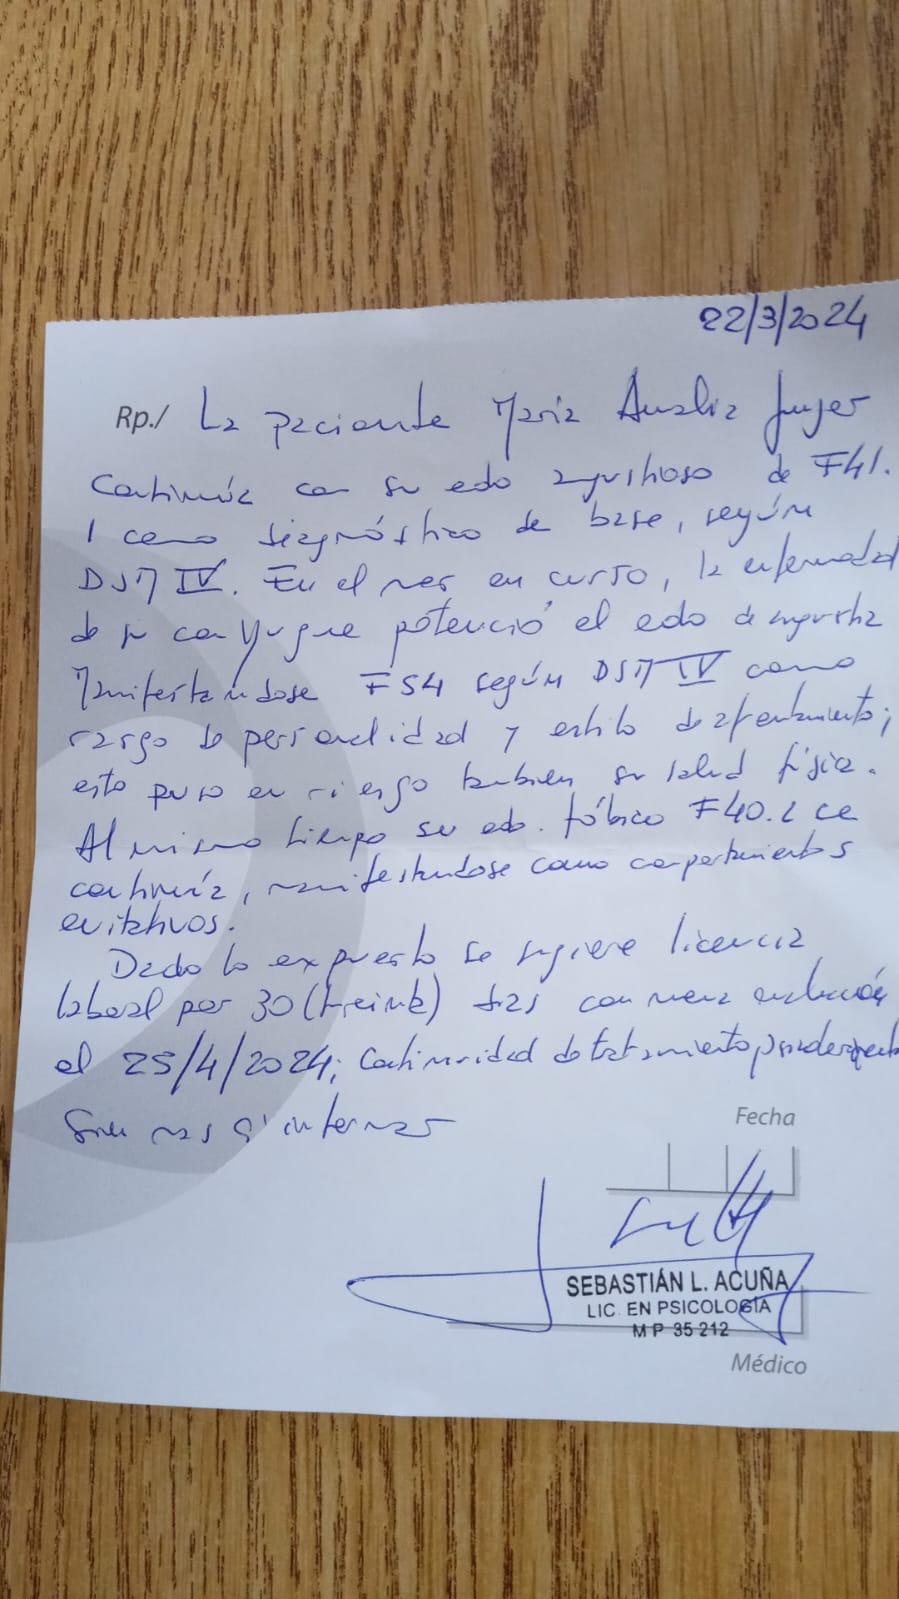 22/3/2024
Rp./ La paciente Maria Analia
Continúa con su edo angustioso de F41.
1 como diagnóstico de base, según
DSM IV. En el mes en curso, la enfermedad
de su conyugue potenció el edo de angustia
Manifestandose F54 según DSM IV como
rasgo de personalidad y estilo de afrontamiento;
esto puso en riesgo tambien su salud física.
Al mismo tiempo su edo. fóbico F40.2 se
continúa, manifestandose como comportamientos
evitativos.
Dado lo expuesto se sugiere licencia
laboral por 30 (treinta) dias con nueva evaluación
el 25/4/2024; Continuidad de tratamiento
Sin mas q' informar
Fecha
SEBASTIÁN L. ACUÑA
LIC. EN PSICOLOGÍA
M P 35 212
Médico